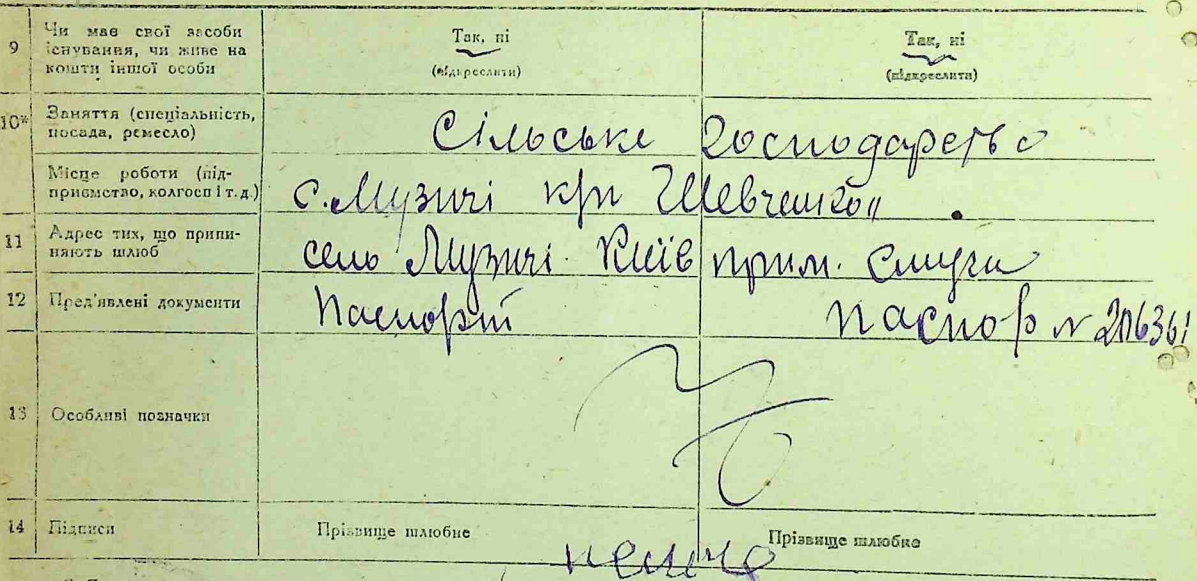 9 Чи має свої засоби існування, чи живе на кошти іншої особи Так, ні (підкреслити) Так, ні (підкреслити)
10* Заняття (спеціальність, посада, ремесло) Сільське Господарство
Місце роботи (підприємство, колгосп і т. д.) с. Музичі Шевченко"
11 Адрес тих, що припиняють шлюб село Музичі Київ прим. смуги
12 Пред'явлені документи Паспорт паспор №
13 Особливі позначки
14 Підписи Прізвище шлюбне Прізвище шлюбне